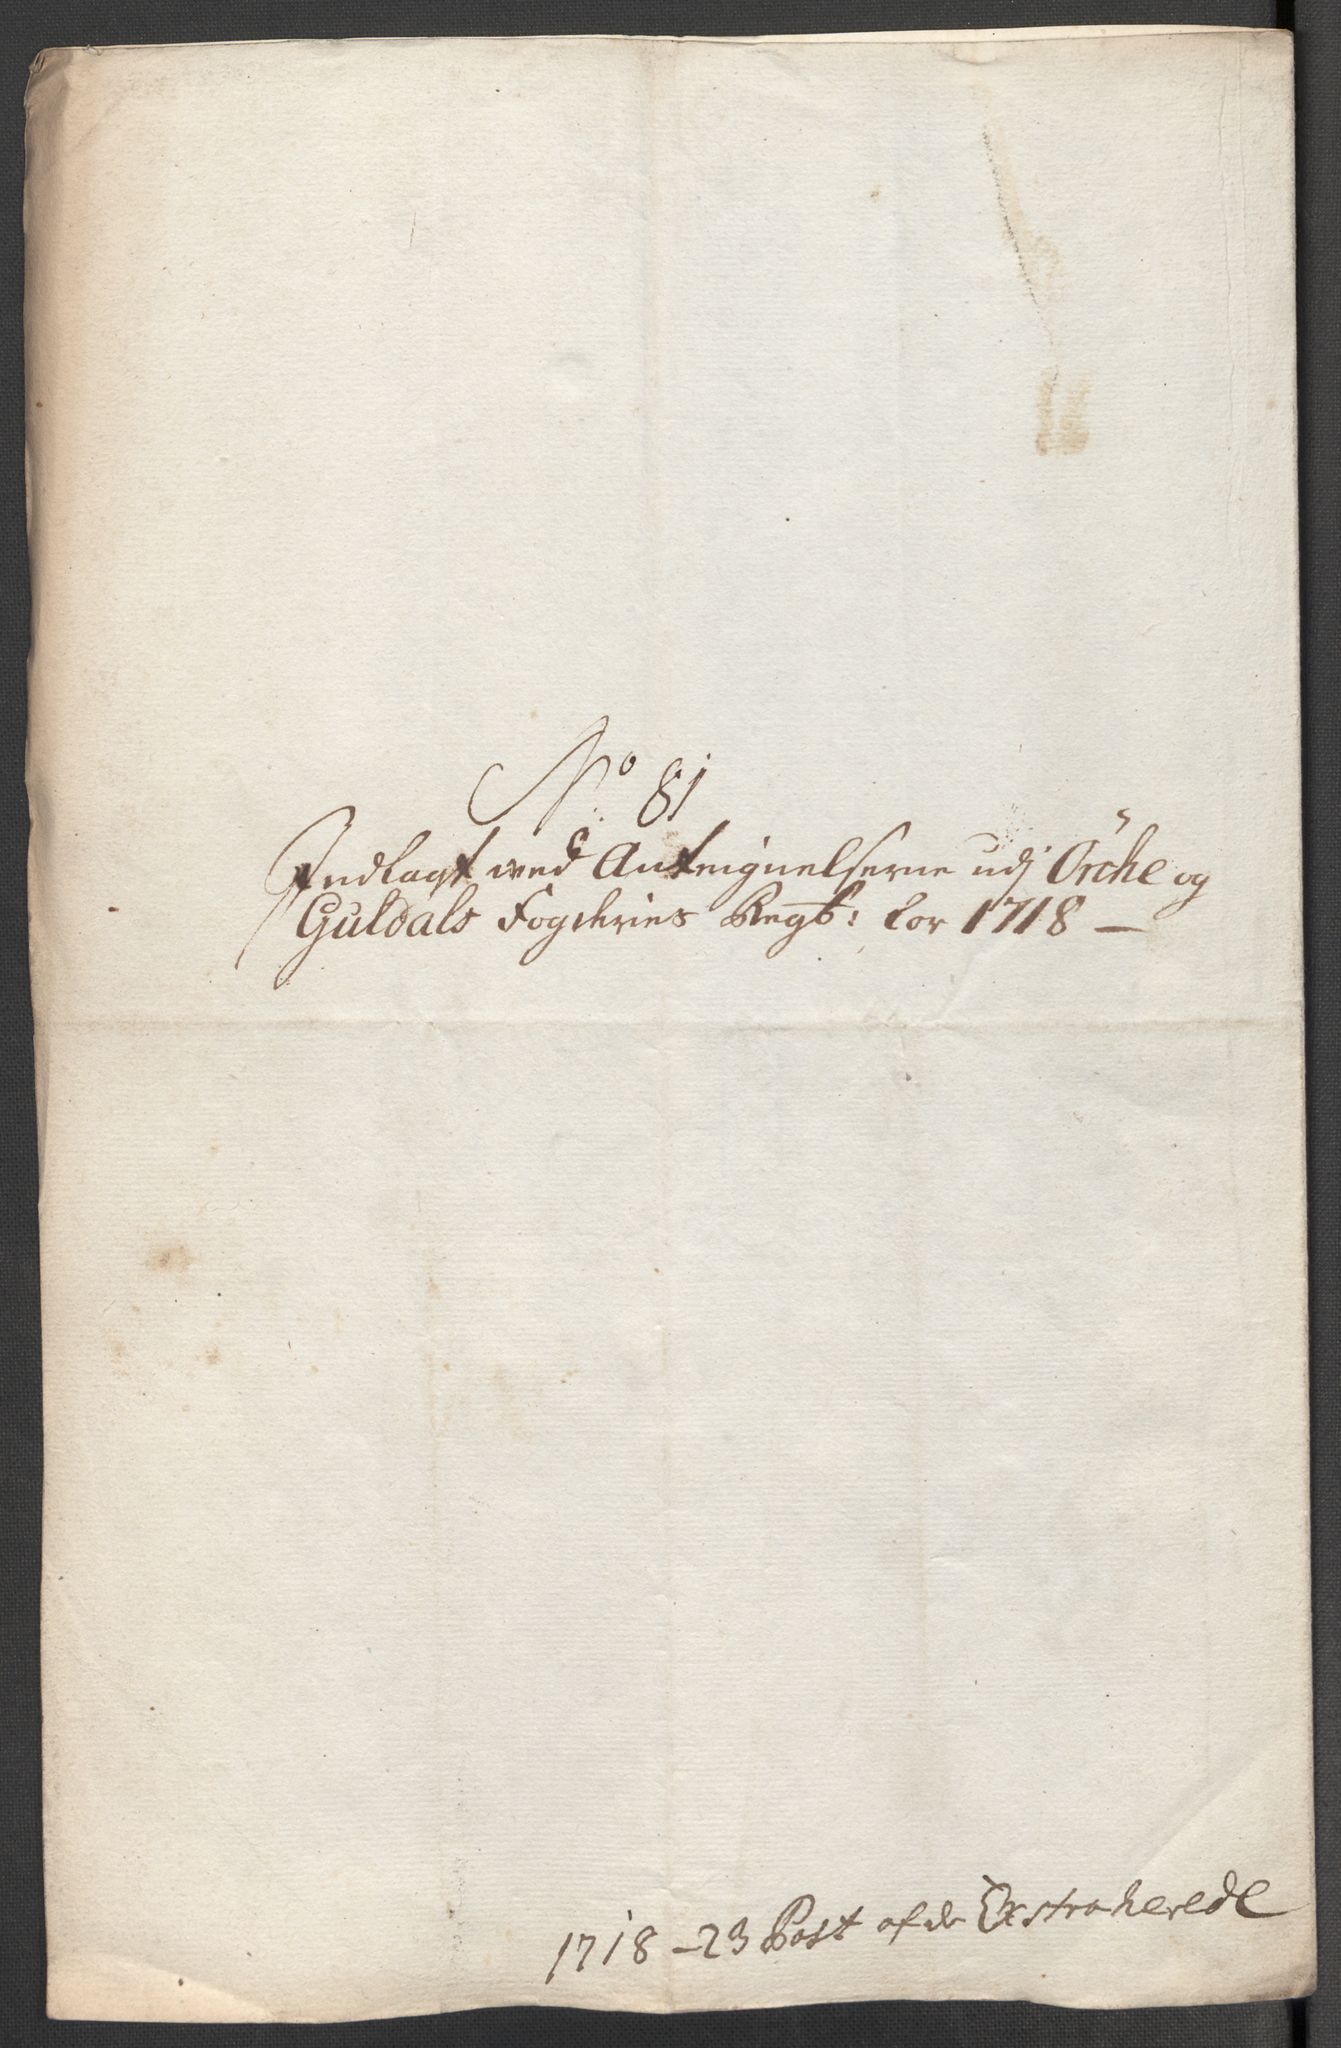 No 81
Indlagt ved Anteignelserne udj Örche og
Guldals Fogderies Regsk: for 1718 —
1718 – 23 Post af de Exstraherede